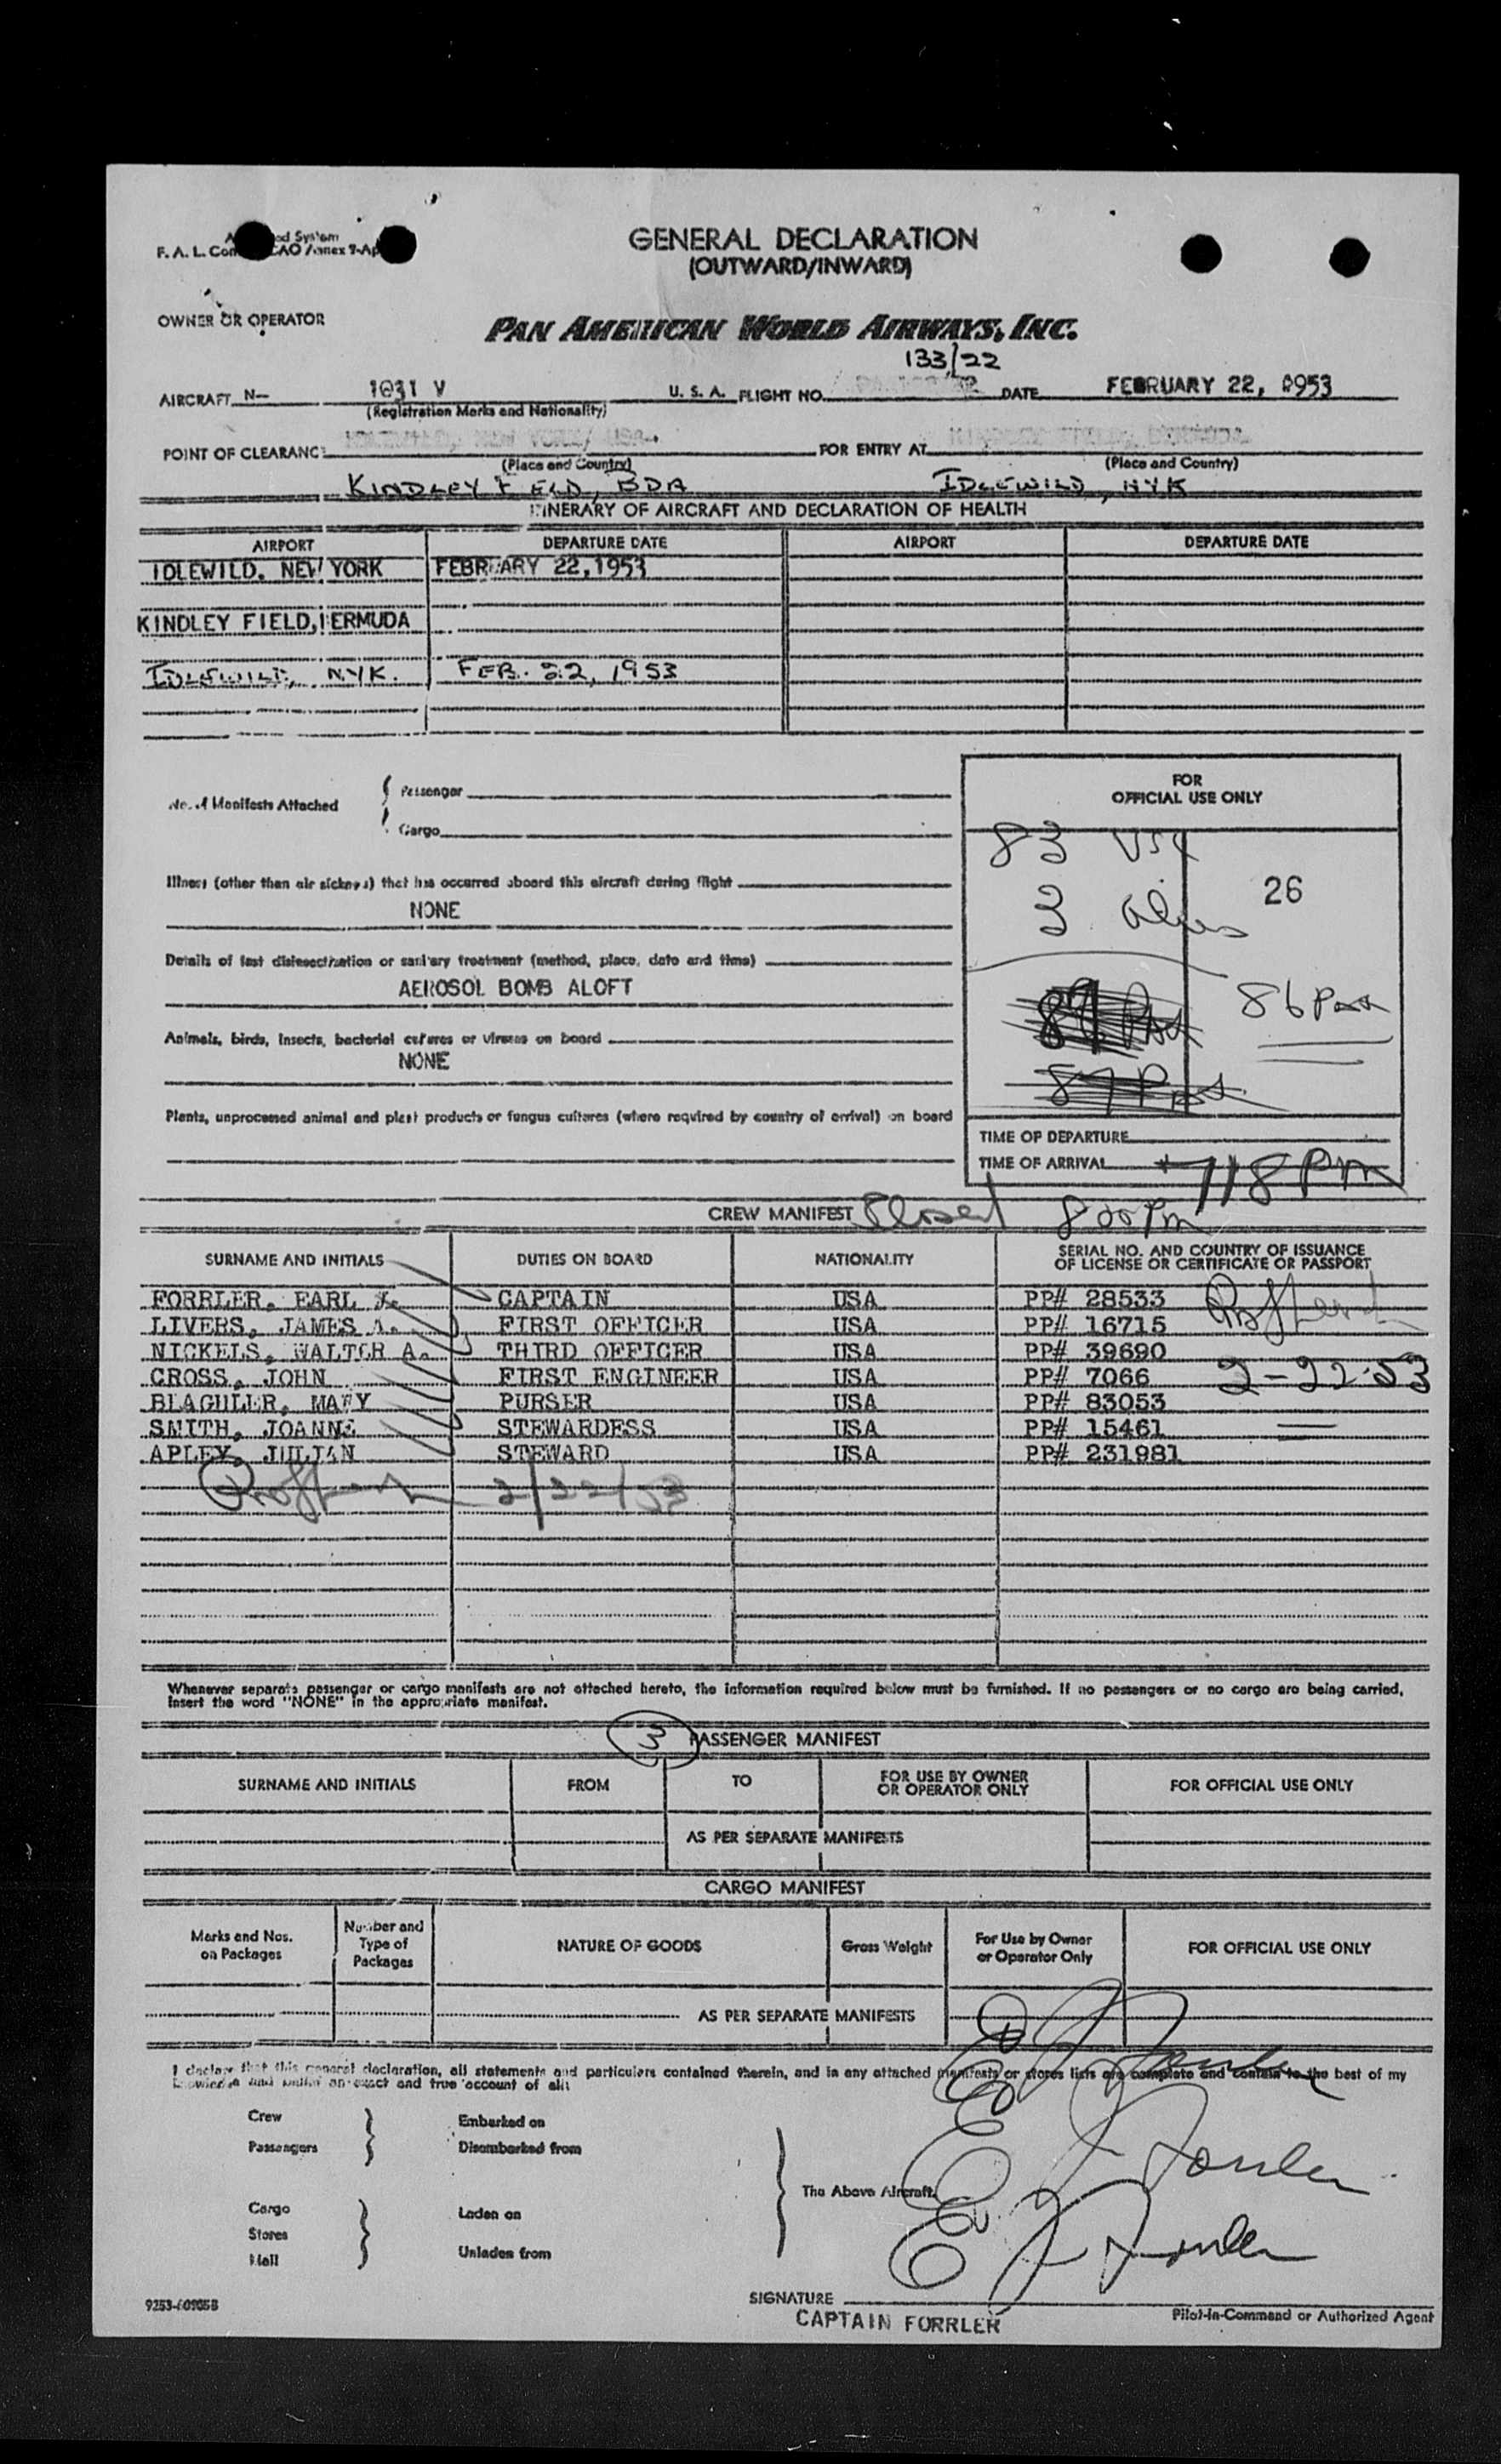 F. A. L. Con CAO Annex 9-Ap
GENERAL DECLARATION
(OUTWARD/INWARD)
OWNER OR OPERATOR
PAN AMERICAN WORLD AIRWAYS, INC.
133/22
AIRCRAFT N— 1031 V U. S. A. FLIGHT NO. DATE FEBRUARY 22, 1953
(Registration Marks and Nationality)
POINT OF CLEARANCE FOR ENTRY AT
(Place and Country) (Place and Country)
KINDLEY FIELD, BDA IDLEWILD, NYK
ITINERARY OF AIRCRAFT AND DECLARATION OF HEALTH
AIRPORT DEPARTURE DATE AIRPORT DEPARTURE DATE
IDLEWILD. NEW YORK FEBRUARY 22, 1953
KINDLEY FIELD, BERMUDA
IDLEWILD, NYK. FEB. 22, 1953
No. of Manifests Attached
Passenger
Cargo
FOR
OFFICIAL USE ONLY
83 USC
3 aliens 26
86 Pass
87 Pass
Illness (other than air sickness) that has occurred aboard this aircraft during flight
NONE
Details of last disinsectization or sanitary treatment (method, place, date and time)
AEROSOL BOMB ALOFT
Animals, birds, insects, bacterial cultures or viruses on board
NONE
Plants, unprocessed animal and plant products or fungus cultures (where required by country of arrival) on board
TIME OF DEPARTURE
TIME OF ARRIVAL 718 PM
CREW MANIFEST Closed 800 PM
SURNAME AND INITIALS DUTIES ON BOARD NATIONALITY SERIAL NO. AND COUNTRY OF ISSUANCE OF LICENSE OR CERTIFICATE OR PASSPORT
FORRLER, EARL CAPTAIN USA PP# 28533
LIVERS, JAMES A. FIRST OFFICER USA PP# 16715
NICKELS, WALTER A. THIRD OFFICER USA PP# 39690
CROSS, JOHN FIRST ENGINEER USA PP# 7066 2-22-53
MARY PURSER USA PP# 83053
SMITH, JOANNE STEWARDESS USA PP# 15461
APLEY, JULIAN STEWARD USA PP# 231981
2/22/53
Whenever separate passenger or cargo manifests are not attached hereto, the information required below must be furnished. If no passengers or no cargo are being carried,
insert the word "NONE" in the appropriate manifest.
3 PASSENGER MANIFEST
SURNAME AND INITIALS FROM TO FOR USE BY OWNER OR OPERATOR ONLY FOR OFFICIAL USE ONLY
AS PER SEPARATE MANIFESTS
CARGO MANIFEST
Marks and Nos. on Packages Number and Type of Packages NATURE OF GOODS Gross Weight For Use by Owner or Operator Only FOR OFFICIAL USE ONLY
AS PER SEPARATE MANIFESTS
I declare that this general declaration, all statements and particulars contained therein, and in any attached manifests or stores lists are complete and contain to the best of my
knowledge and belief an exact and true account of all:
Crew Embarked on
Passengers Disembarked from
The Above Aircraft.
Cargo Laden on
Stores
Mail Unladen from
SIGNATURE
CAPTAIN FORRLER Pilot-in-Command or Authorized Agent